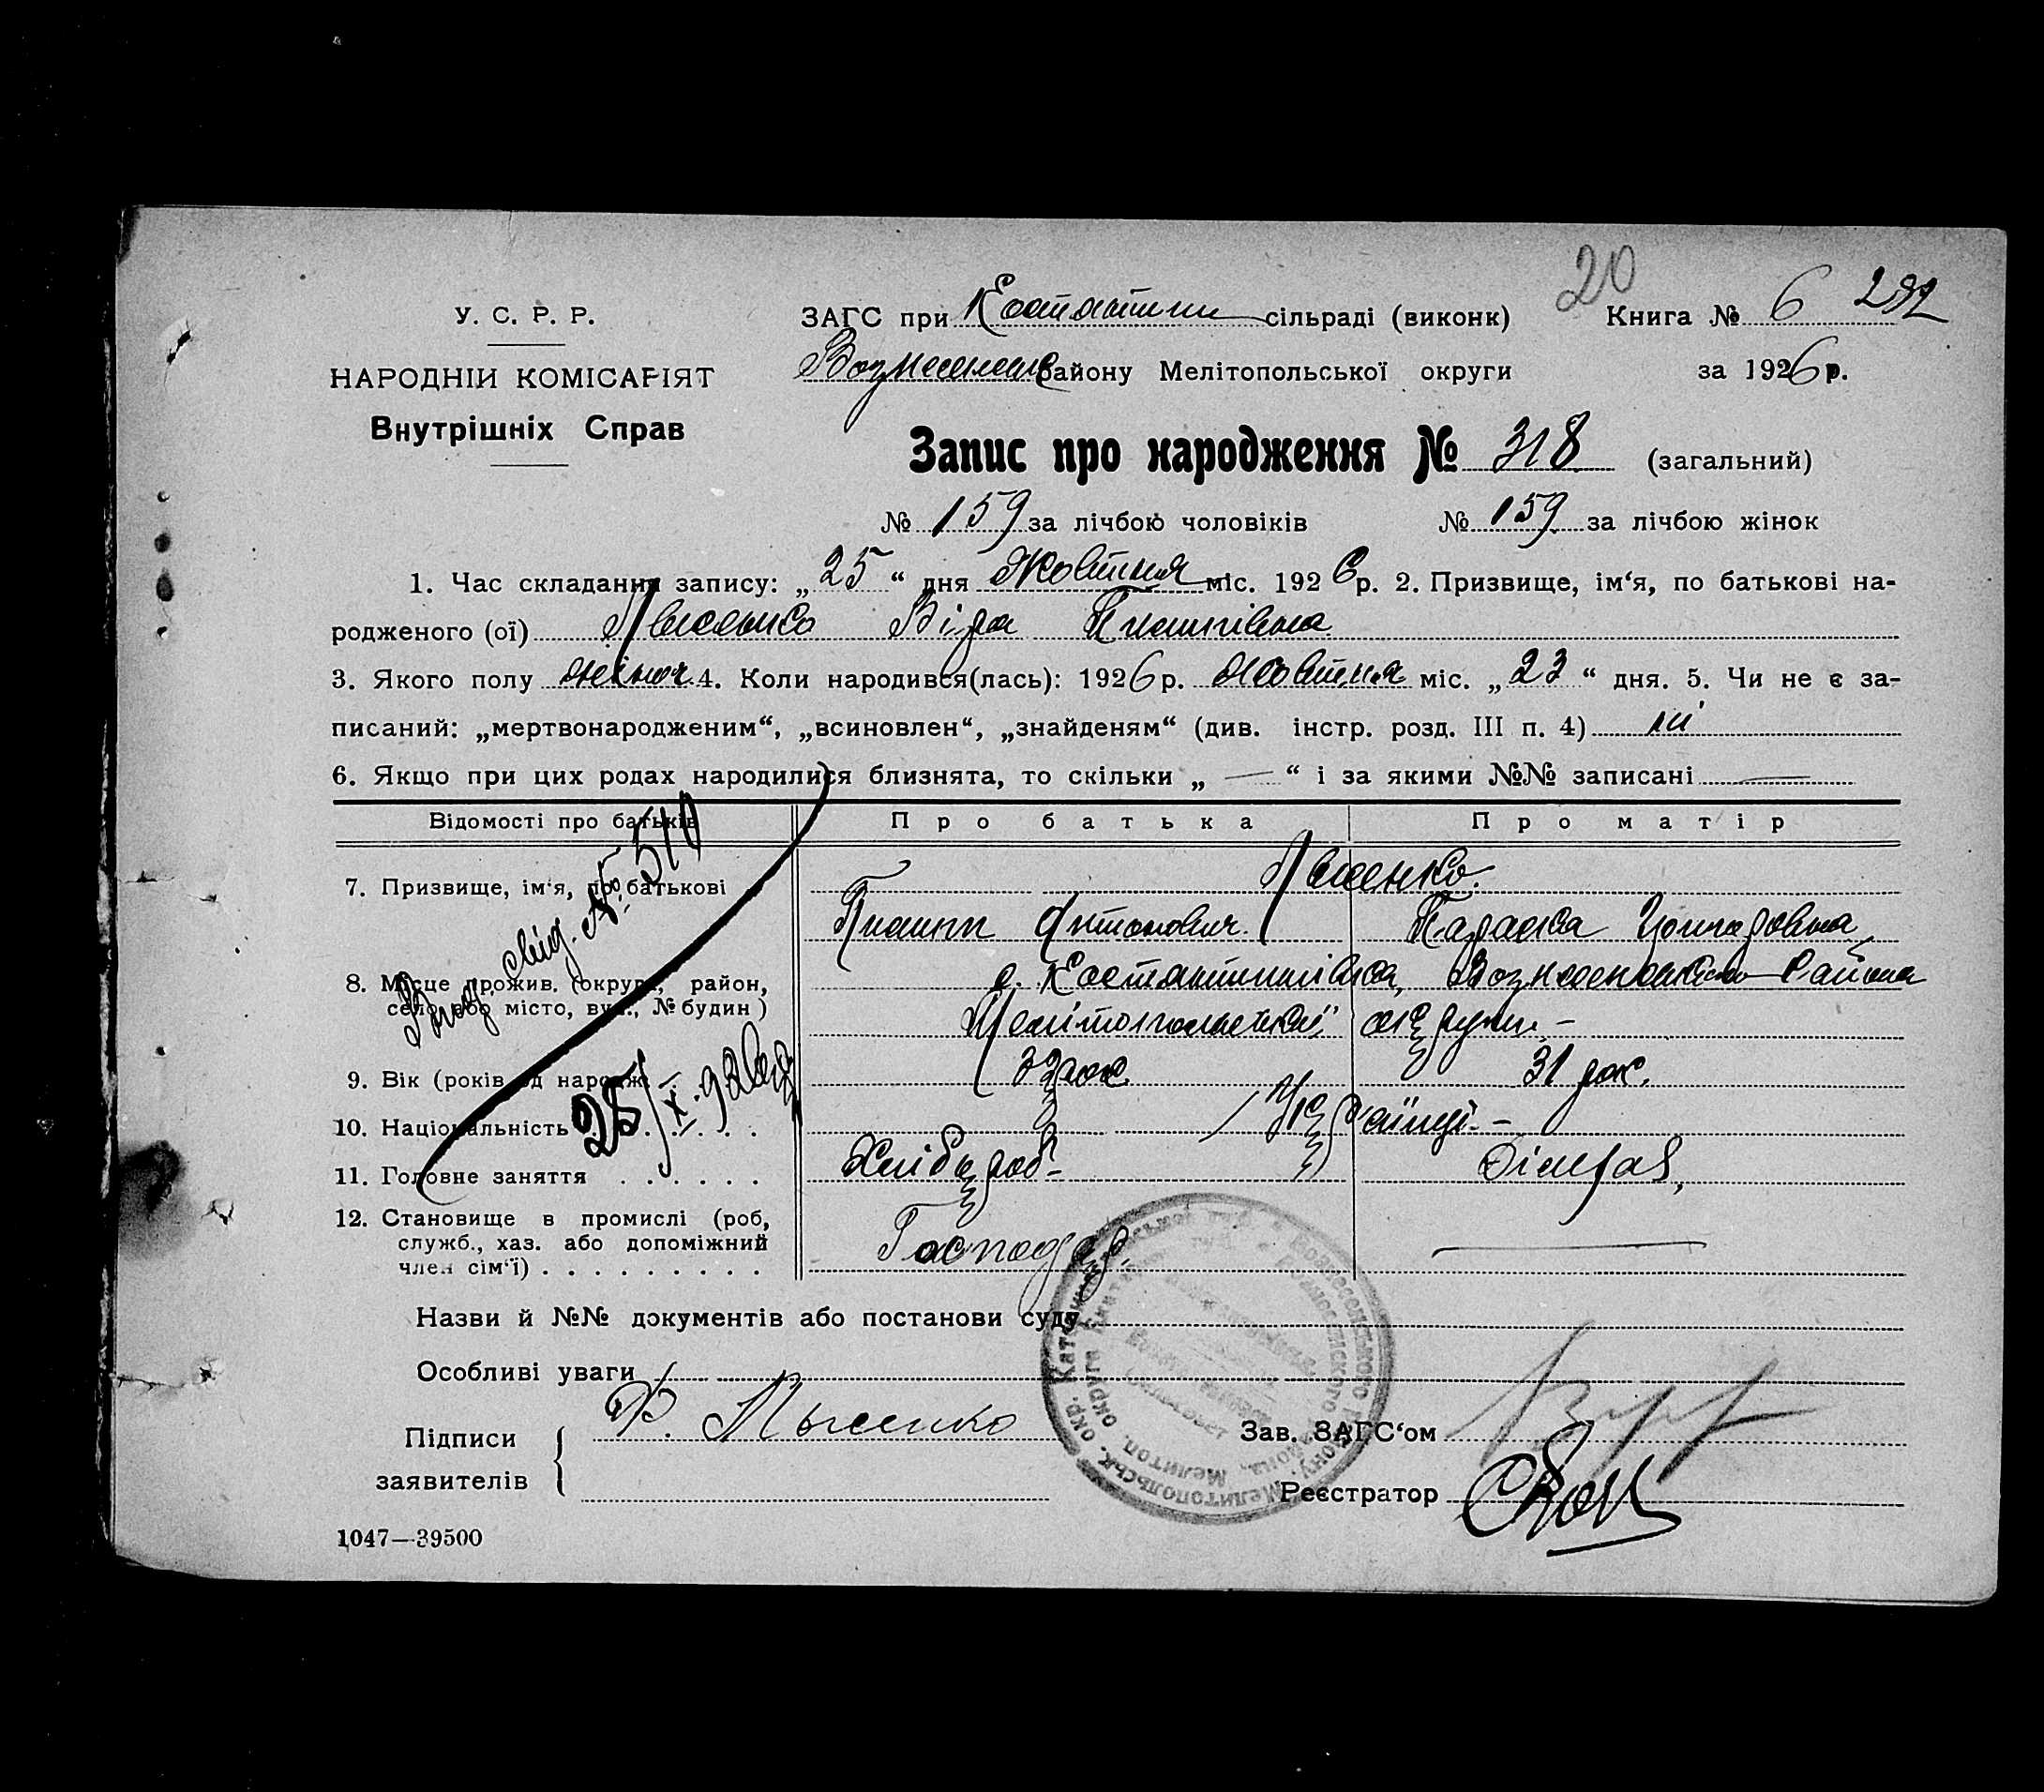 20
У. С. Р. Р.
НАРОДНІЙ КОМІСАРІЯТ
Внутрішніх Справ
ЗАГС при Костянтин сільраді (виконк) Книга № 6 292
Вознесенськ району Мелітопольської округи за 1926 р.
Запис про народження № 318 (загальний)
№ 159 за лічбою чоловіків № 159 за лічбою жінок
1. Час складання запису: „25“ дня Жовтня міс. 1926 р. 2. Призвище, ім‘я, по батькові на-
родженого (ої) Лисенко Віра Пилипівна
3. Якого полу жіноч. 4. Коли народився(лась): 1926 р. Жовтня міс. „23“ дня. 5. Чи не є за-
писаний: „мертвонародженим“, „всиновлен“, „знайденям“ (див. інстр. розд. III п. 4) ні
6. Якщо при цих родах народилися близнята, то скільки „ — “ і за якими №№ записані —
Відомості про батьків Про батька Про матір
7. Призвище, ім‘я, по батькові Лисенко.
Пилип Антонович Параска
8. Місце прожив. (округа, район, с. Костянтинівка, Вознесенського Району
село або місто, вул., № будин) Мелітопольської округи. –
9. Вік (років од народж. 31 рок.
10. Національність Українці. –
11. Головне заняття Хлібороб –
12. Становище в промислі (роб, Господар.
служб., хаз. або допоміжний
член сім‘ї) —
Вид. свід. № 510
25/X
Назви й №№ документів або постанови суду
Особливі уваги
Підписи Ф. Лысенко Зав. ЗАГС‘ом
заявителів Реєстратор
1047—39500